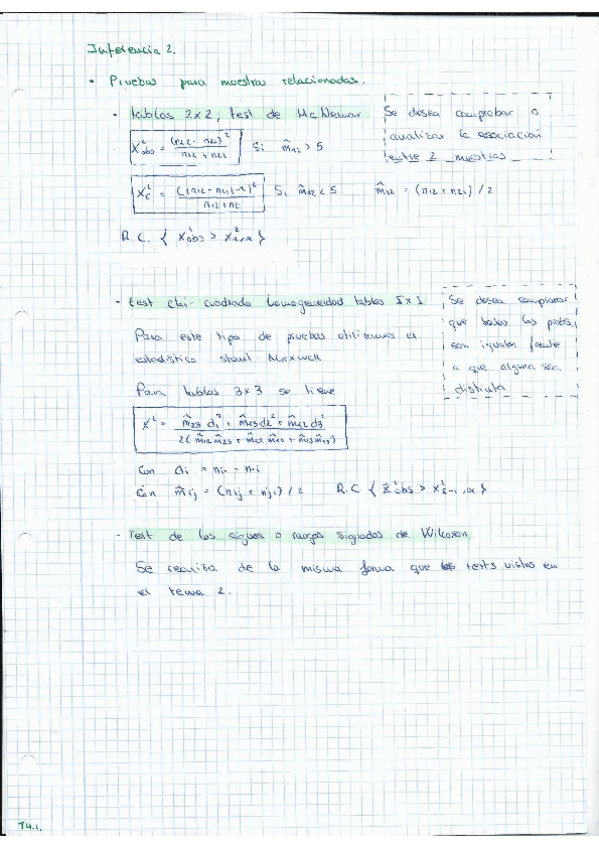 Inferencia 2.
• Pruebas para muestras relacionadas.
- tablas 2x2, test de Mc Nemar
X²obs = (n12 - n21)² / n12 + n21 Si m̂12 > 5
Se desea comprobar o
analizar la asociación
entre 2 muestras
X²c = (|n12 - n21|-1)² / n12+n21 Si m̂12 < 5 m̂12 = (n12 + n21) / 2
R.C. { X²obs > X²1,α }
- test chi-cuadrado homogeneidad tablas IxI
Se desea comprobar
que todas las probs,
son iguales frente
a que alguna sea
distinta
Para este tipo de pruebas utilizamos el
estadístico stuart Maxwell
Para tablas 3x3 se tiene
X² = m̂23 d1² + m̂13 d2² + m̂12 d3² / 2(m̂12 m̂23 + m̂12 m̂13 + m̂13 m̂23)
con di = ni. - n.i
con m̂ij = (nij + nji) / 2 R.C { X²obs > X²I-1,α }
- Test de los signos o rangos signados de Wilcoxon
Se realiza de la misma forma que los tests vistos en
el tema 2.
T4.1.